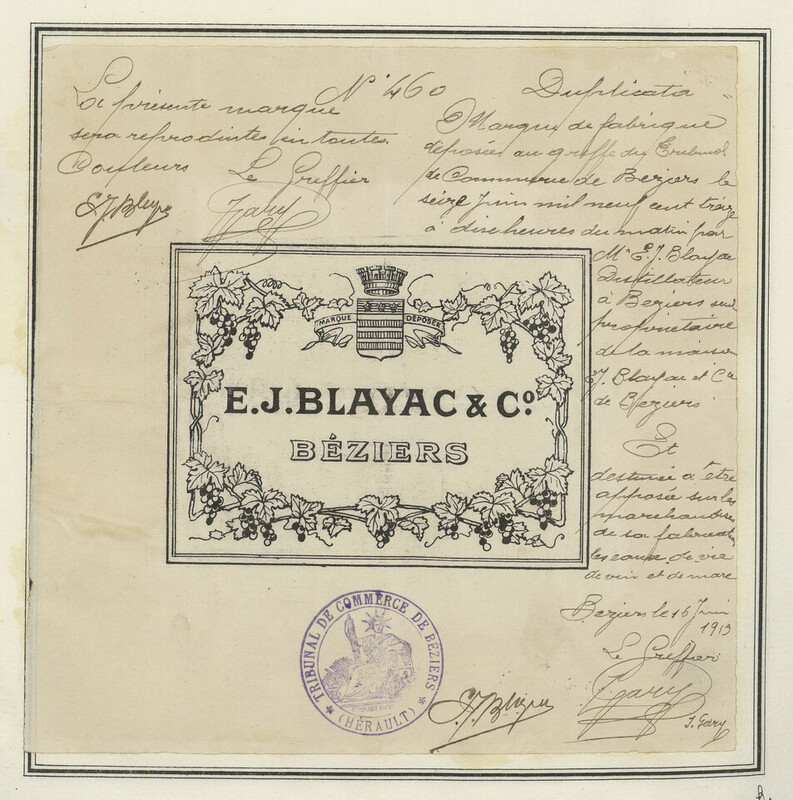 La présente marque
sera reproduites en toutes
Couleurs Le Greffier
E.J. Blayac
Gary
N° 460
Duplicata
Marque de fabrique
déposée au greffe du Tribunal
de Commerce de Béziers le
seize Juin mil neuf cent treize
à dix heures du matin par
Mr E. J. Blayac
Distillateur
à Béziers seul
propriétaire
de la maison
E.J. Blayac et Cie
de Béziers
Et
destinée à être
apposée sur les
marchandises
de sa fabrication
les eaux de vie
de vin et de marc
Beziers le 16 Juin
1913
Le Greffier
J. Gary
J. Gary
E.J. Blayac
MARQUE DÉPOSÉE
E.J.BLAYAC & Cº.
BÉZIERS
TRIBUNAL DE COMMERCE DE BÉZIERS
(HÉRAULT)